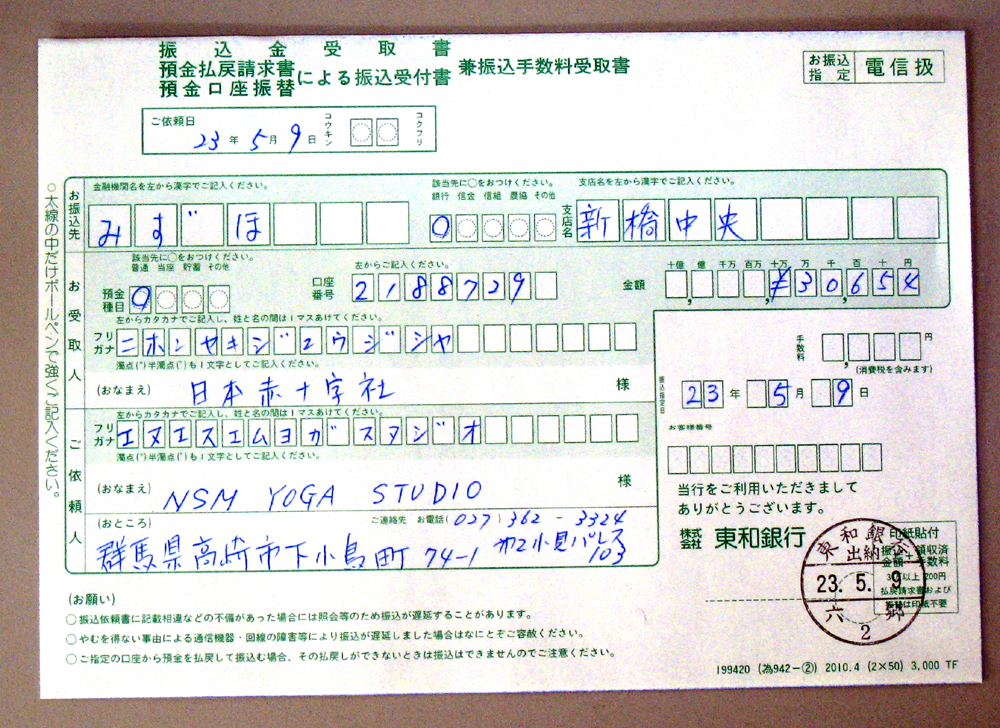 振込金受取書
預金払戻請求書
預金口座振替 による振込受付書 兼振込手数料受取書
お振込指定 電信扱
ご依頼日
23年 5月 9日
コウキン
コクフリ
○太線の中だけボールペンで強くご記入ください。
お振込先
金融機関名を左から漢字でご記入ください。
該当先に○をおつけください。
銀行 信金 信組 農協 その他
支店名を左から漢字でご記入ください。
みずほ
支店名 新橋中央
お受取人
該当先に○をおつけください。
普通 当座 貯蓄 その他
預金種目
左からご記入ください。
口座番号 2188729
金額
十億 億 千万 百万 十万 万 千 百 十 円
¥30,654
左からカタカナでご記入し、姓と名の間は1マスあけてください。
フリガナ ニホンセキジュウジシャ
濁点(")半濁点(°)も1文字としてご記入ください。
(おなまえ) 日本赤十字社 様
手数料 円
(消費税を含みます)
振込指定日
23年 5月 9日
お客様番号
ご依頼人
左からカタカナでご記入し、姓と名の間は1マスあけてください。
フリガナ エヌエスエムヨガスタジオ
濁点(")半濁点(°)も1文字としてご記入ください。
(おなまえ) NSM YOGA STUDIO 様
(おところ) ご連絡先 お電話(027)362-3324
群馬県高崎市下小鳥町 74-1
103
当行をご利用いただきまして
ありがとうございます。
株式会社 東和銀行
印紙貼付
東和銀
出納
23.5.9
六郷
2
(お願い)
○振込依頼書に記載相違などの不備があった場合には照会等のため振込が遅延することがあります。
○やむを得ない事由による通信機器・回線の障害等により振込が遅延しました場合はなにとぞご容赦ください。
○ご指定の口座から預金を払戻して振込む場合、その払戻しができないときは振込はできませんのでご注意ください。
199420 (為942-②) 2010.4 (2×50) 3,000 TF